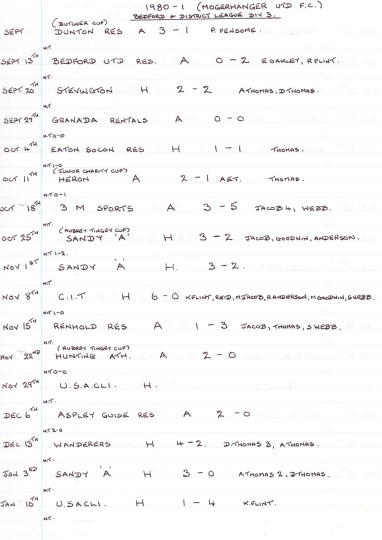 1980-1 (MOGERHANGER UTD F.C.)
BEDFORD & DISTRICT LEAGUE DIV 3.
(BUTCHER CUP)
SEPT DUNTON RES A 3-1 P. FENSOME.
HT.
SEPT 13TH BEDFORD UTD RES. A 0-2 E OAKLEY, R FLINT.
HT.
SEPT 20TH STEVINGTON H 2-2 A THOMAS, D THOMAS.
HT.
SEPT 27TH GRANADA RENTALS A 0-0
HT 0-0
OCT 4TH EATON SOCON RES H 1-1 THOMAS.
HT 1-0
(JUNIOR CHARITY CUP)
OCT 11TH HERON A 2-1 AET. THOMAS.
HT 0-1
OCT 18TH 3 M SPORTS A 3-5 JACOB 4, WEBB.
HT.
(AUBREY TINGEY CUP)
OCT 25TH SANDY 'A' H 3-2 JACOB, GOODWIN, ANDERSON.
HT 1-2.
NOV 1ST SANDY 'A' H. 3-2.
HT.
NOV 8TH C.I.T H 6-0 K FLINT, REID, M JACOB, R ANDERSON, M GOODWIN, S WEBB.
HT 1-0
NOV 15TH RENHOLD RES A 1-3 JACOB, THOMAS, S WEBB.
HT.
(AUBREY TINGEY CUP)
NOV 22ND HUNTING ATH. A 2-0
HT 0-0
NOV 29TH U.S.A.C.L.I. H.
HT.
DEC 6TH ASPLEY GUIDE RES A 2-0
HT 2-0
DEC 13TH WANDERERS H 4-2. D. THOMAS 3, A THOMAS.
HT.
JAN 3RD SANDY 'A' H 3-0 A THOMAS 2, D THOMAS.
HT.
JAN 10TH U.S.A.C.L.I. H 1-4 K. FLINT.
HT.